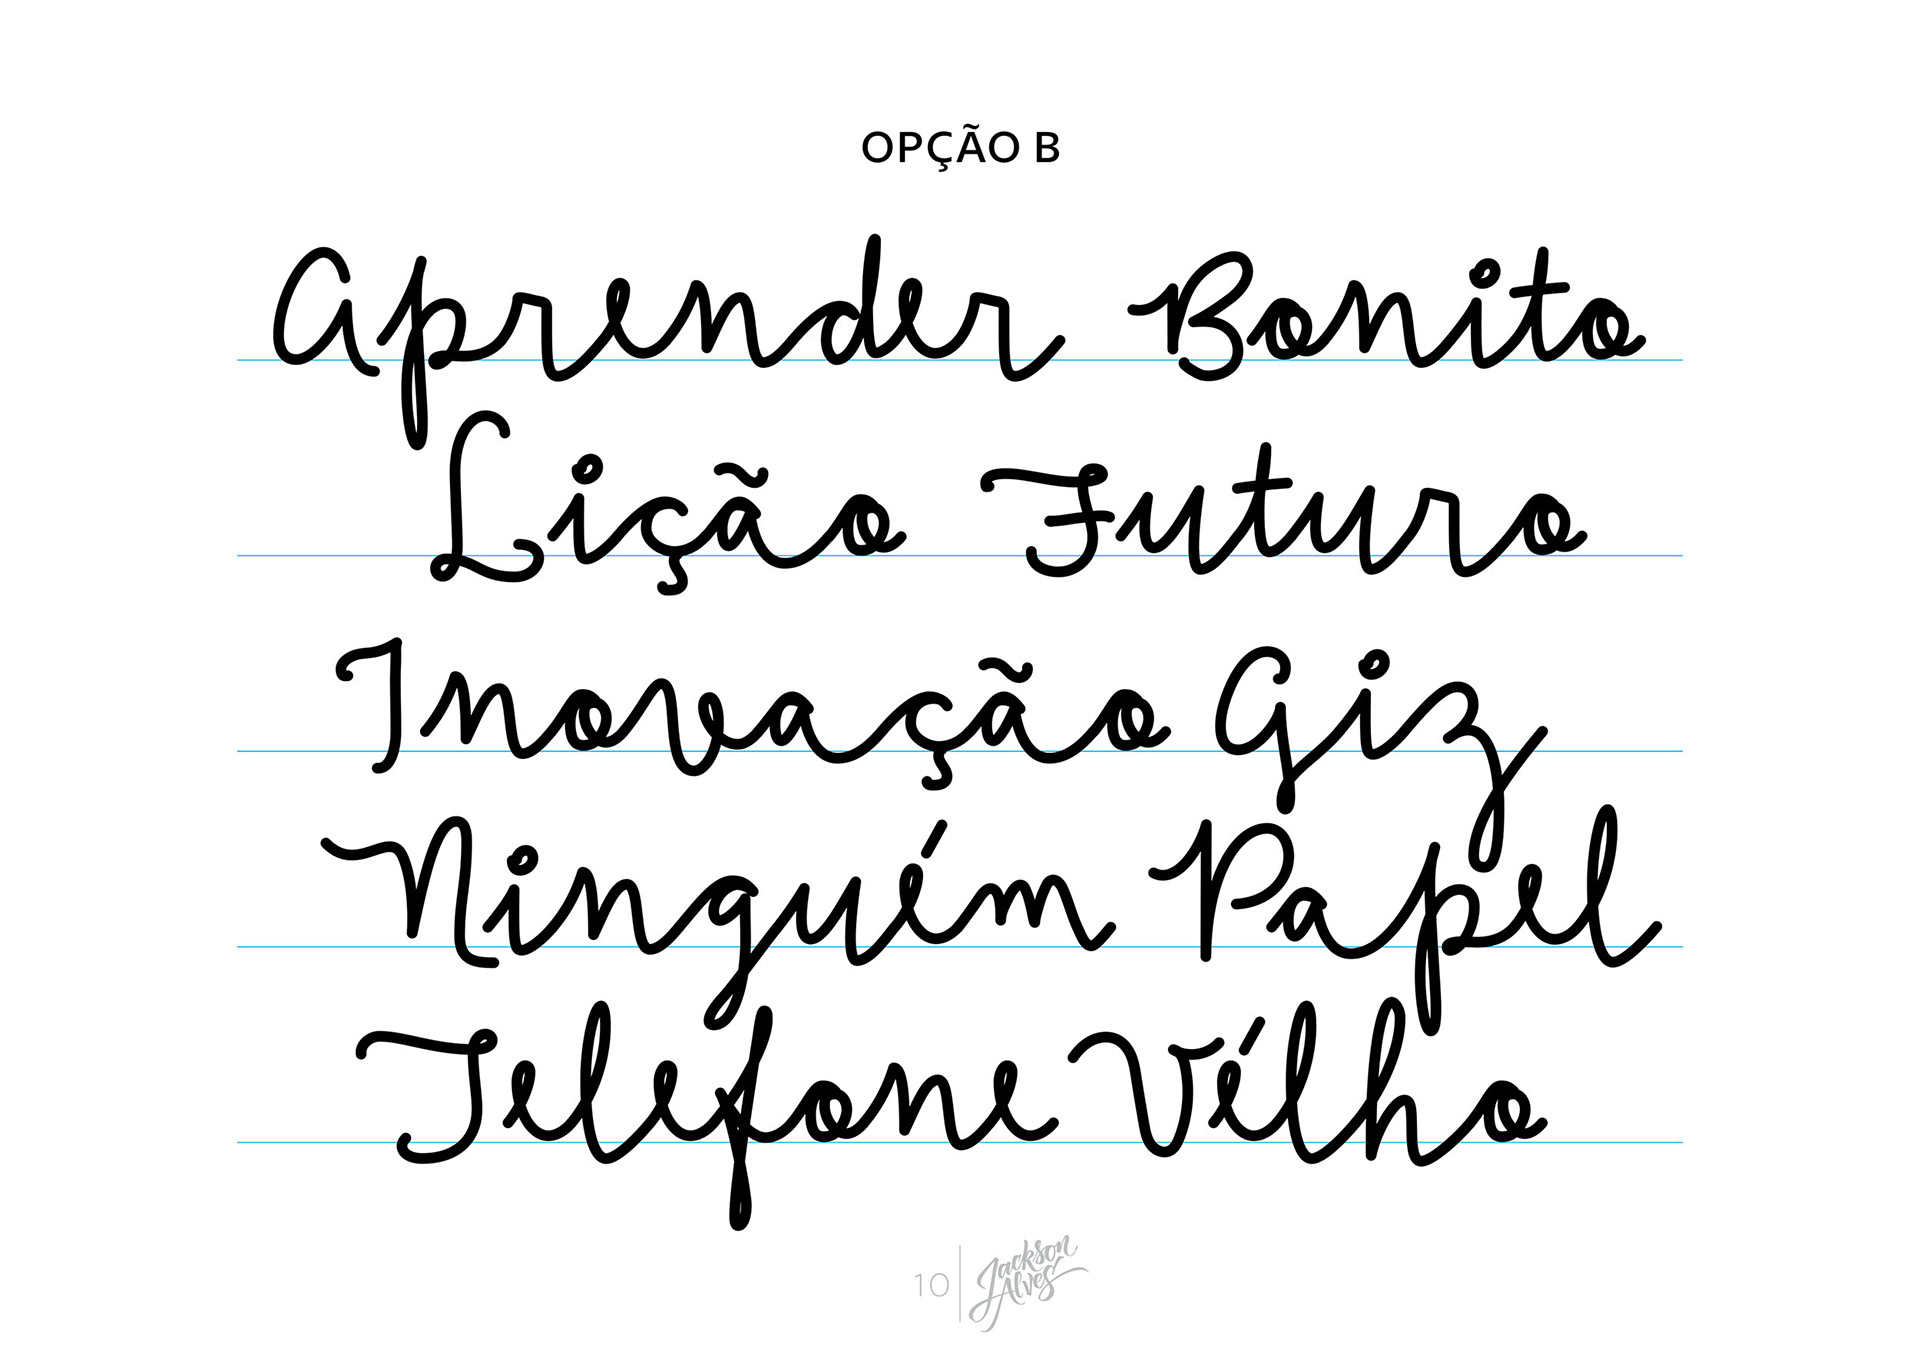 OPÇÃO B
Aprender Bonito
Lição Futuro
Inovação Giz
Ninguém Papel
Telefone Vélho
10 Jackson Alves